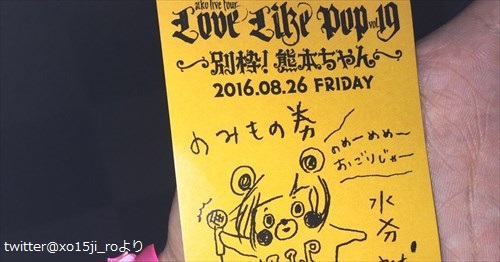 aiko live tour
Love Like Pop vol.19
〜別枠！熊本ちゃん〜
2016.08.26 FRIDAY
のみもの券
のめーめめー
おごりじゃー
水分
twitter@xo15ji_roより